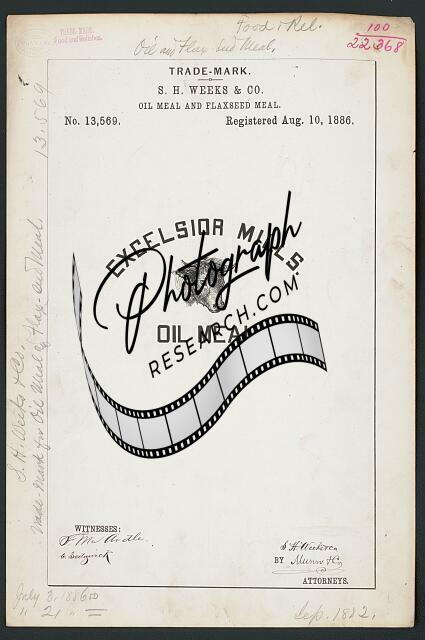 Food & Rel.
TRADE-MARK.
Food and Relishes.
100
22368
Oil and Flax Seed Meal.
TRADE-MARK.
S. H. WEEKS & CO.
OIL MEAL AND FLAXSEED MEAL.
No. 13,569. Registered Aug. 10, 1886.
EXCELSIOR MILLS.
Photograph
RESEARCH.COM
OIL MEAL
S. H. Weeks & Co. 13.569
Trade-Mark for Oil Meal & Flax-Seed Meal
WITNESSES:
C. Sedgwick
S H Weeks & Co
BY Munn & Co
ATTORNEYS.
July 3, 1886
" 21 " =
Sep. 1882.